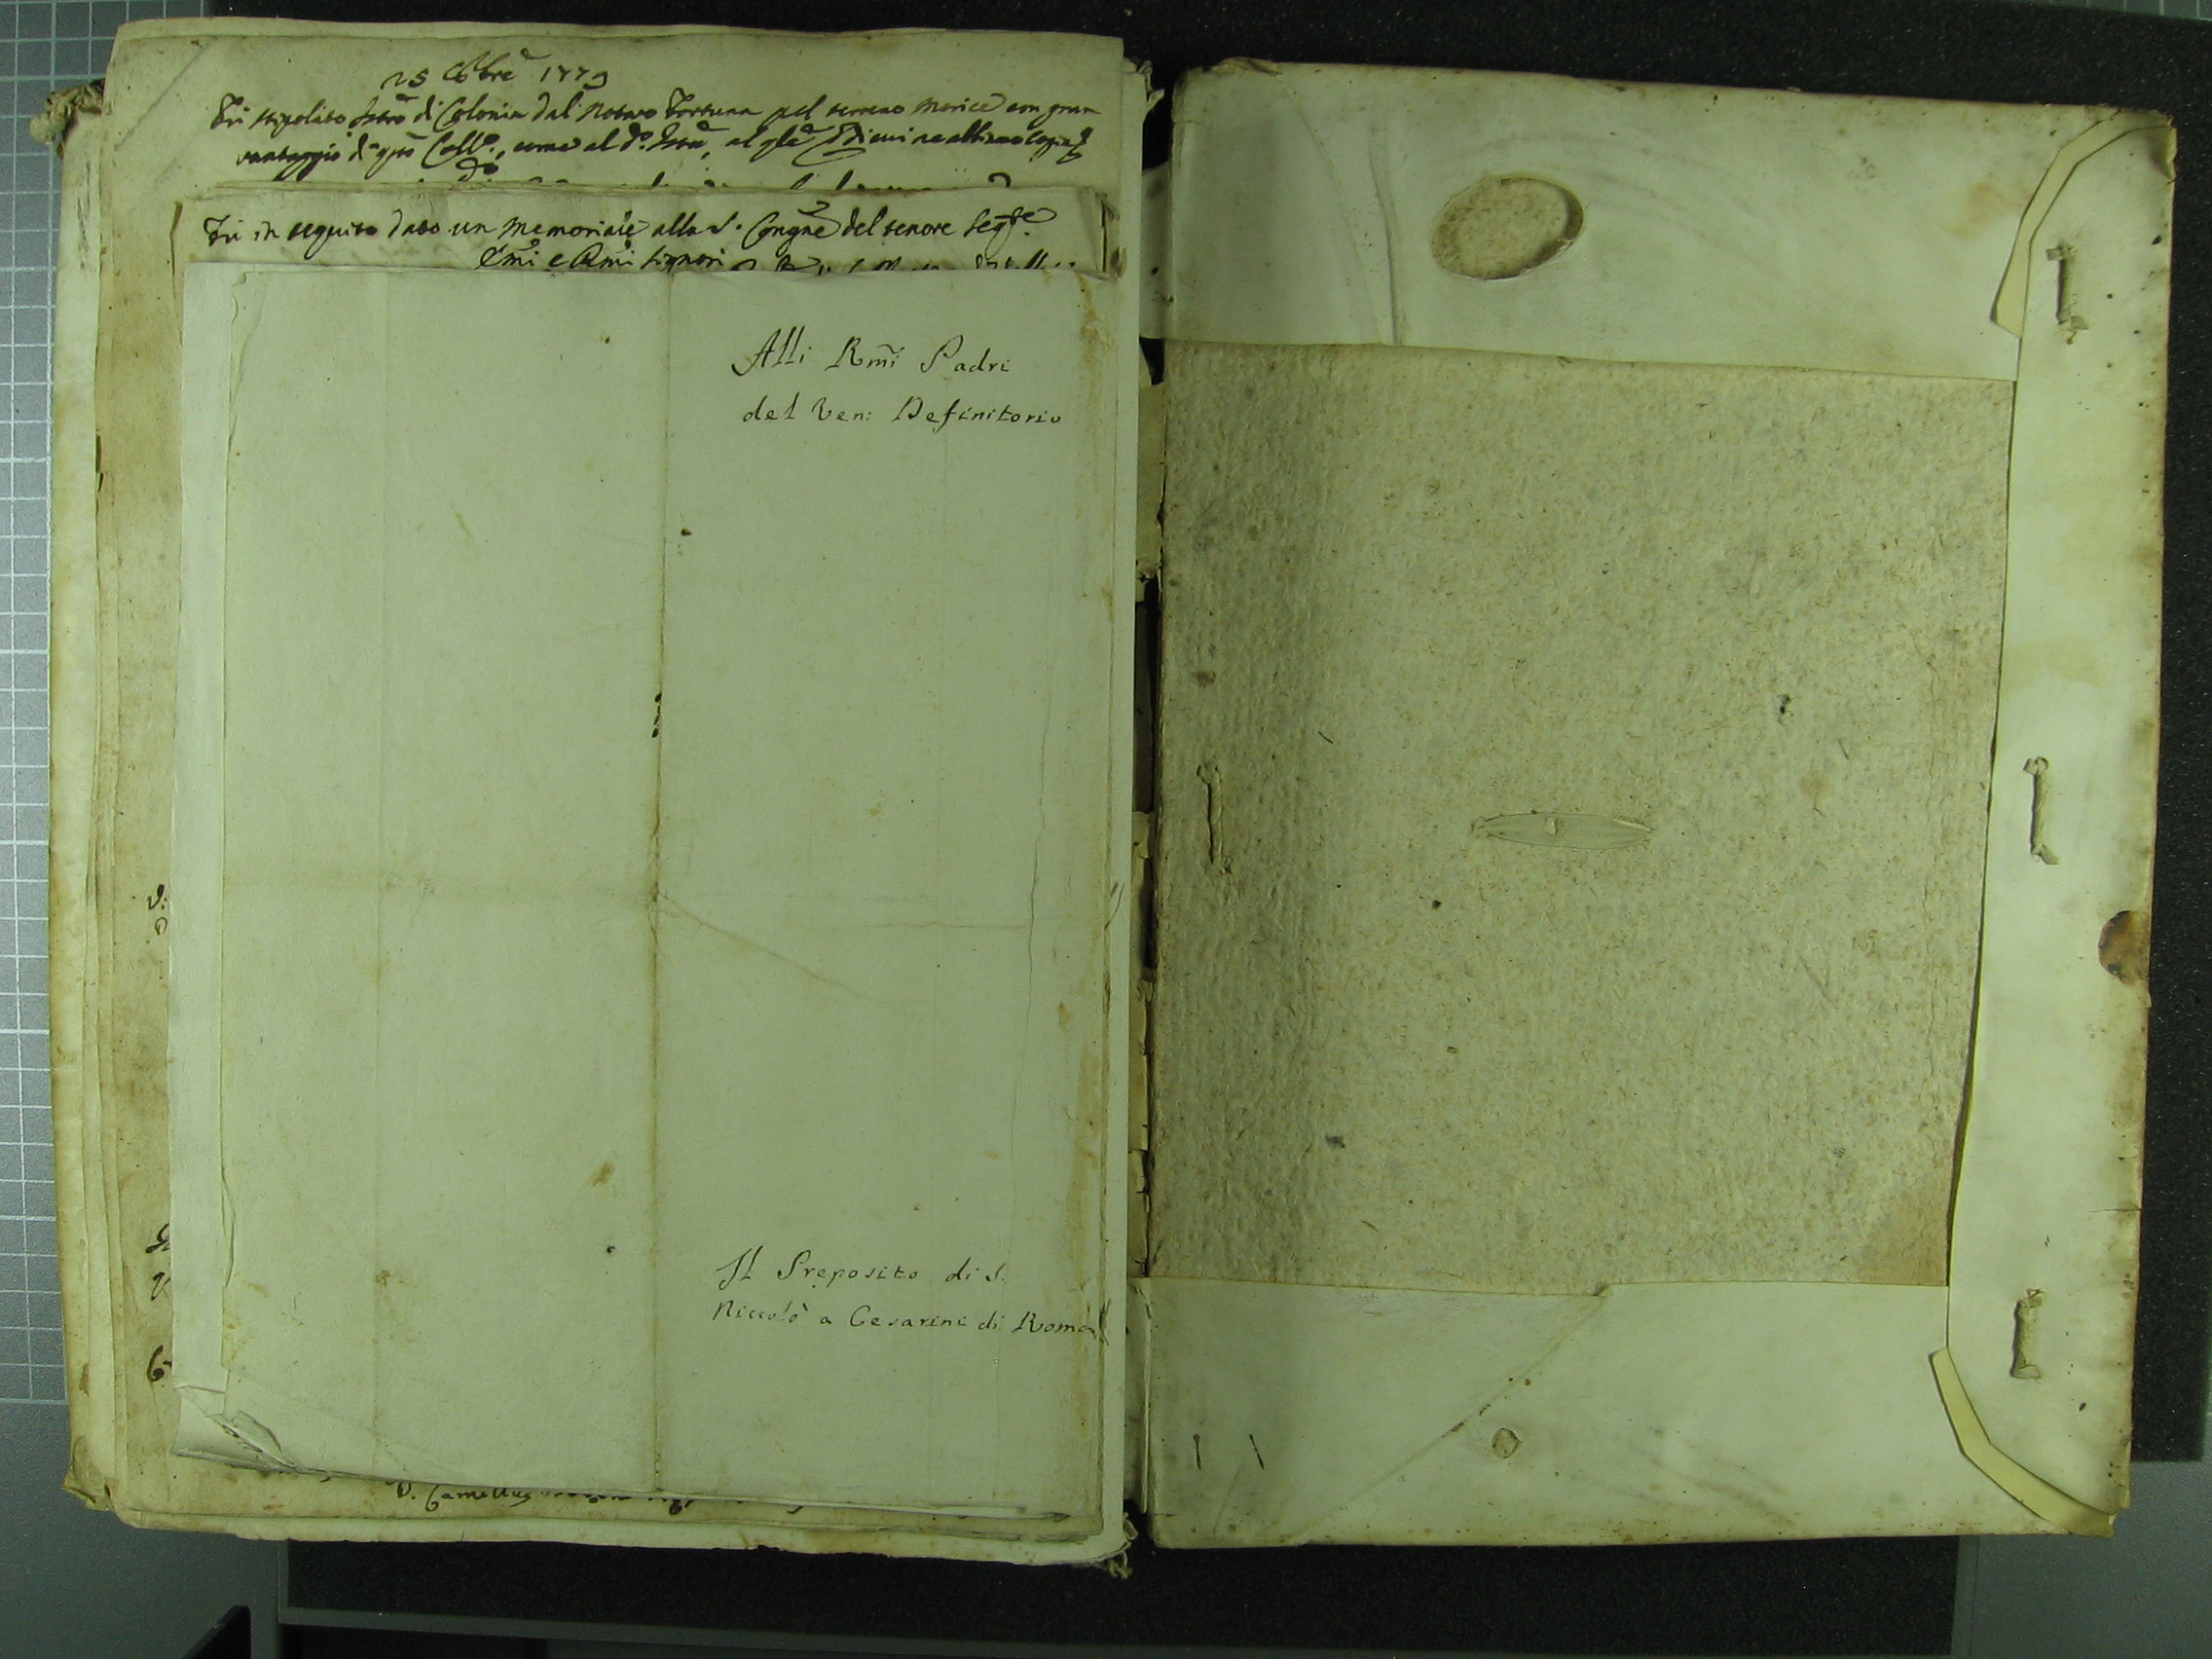 25 Xbre 1779
Fù stipolato Istro di Colonia dal Notaro Fortuna pel terreno Morice con gran
vantaggio di qto Collo., come al do. Istro, al qle di cui ne abbiamo copia
Fù in seguito dato un Memoriale alla S. Congne del tenore segte
Emi e Rmi Signori
Alli Rm̃i Padri
del Ven: Definitorio
Il Preposito di S.
Niccolò a Cesarini di Roma
D. Camillus